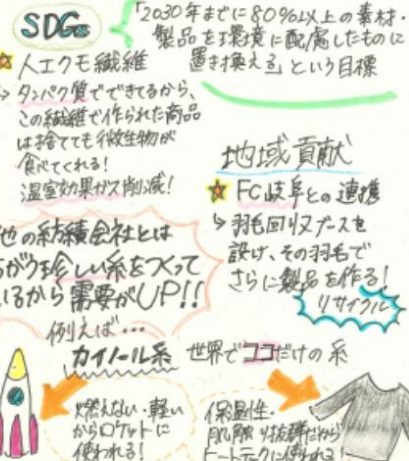 SDGs
「2030年までに80%以上の素材・
製品を環境に配慮したものに
置き換える」という目標
☆人工クモ繊維
↳タンパク質でできてるから、
この繊維で作られた商品
は捨てても微生物が
食べてくれる!
温室効果ガス削減!
地域貢献
☆FC岐阜との連携
↳羽毛回収ブースを
設け、その羽毛で
さらに製品を作る!
リサイクル
他の紡績会社とは
ちがう珍しい糸をつくって
いるから需要がUP!!
例えば…
カイノール糸 世界でココだけの糸
燃えない・軽い
からロケットに
使われる!
保温性・
肌触り抜群だから
ヒートテックに使われる!